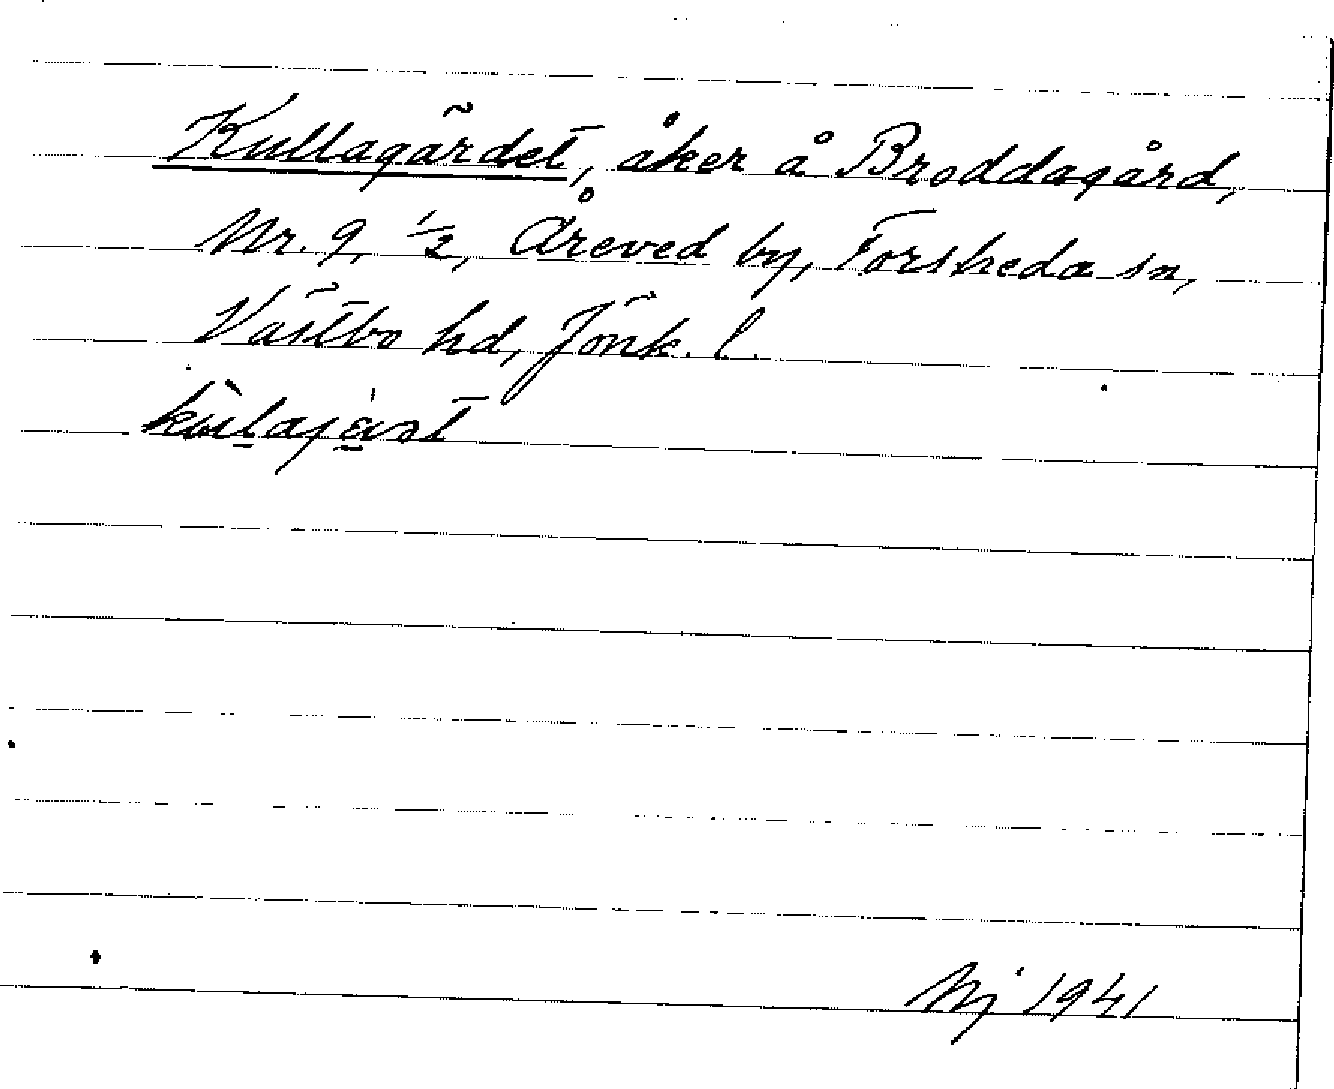 Kullagärdet, åker å Broddagård,
Nr. 9, 1/2, Åreved by, Forsheda sn,
Västbo hd, Jönk. l.
1941